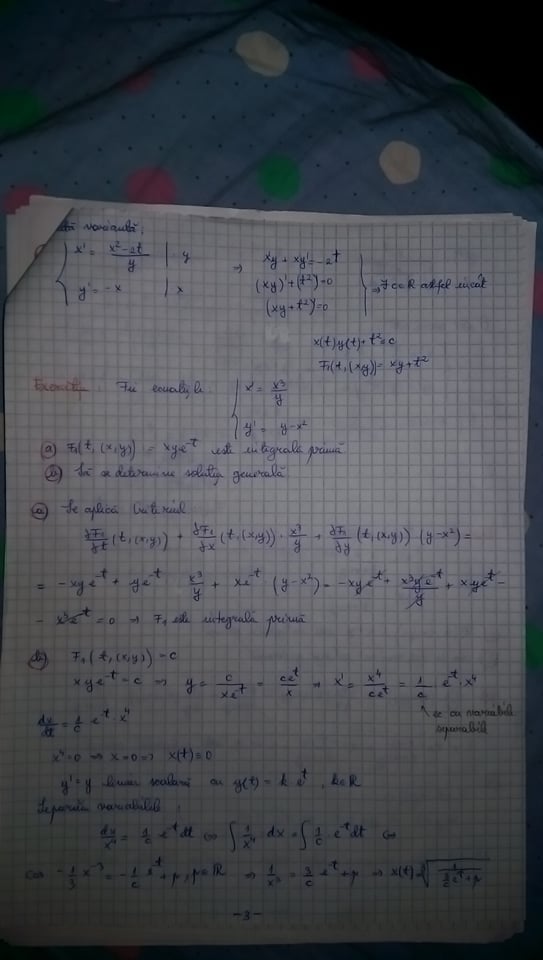 variantă:
{ x' = (x²-2t)/y | · y
y' = -x | x
⇒ xy + xy' = -2t
(xy)' + (t²)' = 0
(xy + t²)' = 0
⇒ ∃ c∈R astfel încât
x(t)y(t) + t² = c
F₁(t, (x,y)) = xy + t²
Exercițiu : Fie ecuațiile { x' = x³/y
y' = y - x²
a) F₁(t, (x,y)) = xye^-t este integrală primă
b) Să se determine soluția generală
a) Se aplică Criteriul
∂F₁/∂t (t, (x,y)) + ∂F₁/∂x (t, (x,y)) · x³/y + ∂F₁/∂y (t, (x,y)) (y-x²) =
= -xye^-t + ye^-t x³/y + xe^-t (y-x²) = -xye^-t + x³ye^-t/y + xye^-t -
- x³e^-t = 0 ⇒ F₁ este integrală primă
b) F₁(t, (x,y)) = c
xye^-t = c ⇒ y = c/xe^-t = ce^t/x ⇒ x' = x⁴/ce^t = 1/c e^-t · x⁴
↑ ec cu variabile
separabile
dx/dt = 1/c e^-t · x⁴
x⁴ = 0 ⇒ x = 0 ⇒ x(t) = 0
y' = y liniară scalară cu y(t) = k e^t, k∈R
Separăm variabilele :
dx/x⁴ = 1/c e^-t dt ⇔ ∫ 1/x⁴ dx = ∫ 1/c · e^-t dt ⇔
⇔ -1/3 x^-3 = -1/c e^-t + p, p∈R ⇒ 1/x³ = 3/c e^-t + p ⇒ x(t) = ∛(1/(3/c e^-t + p))
-3-